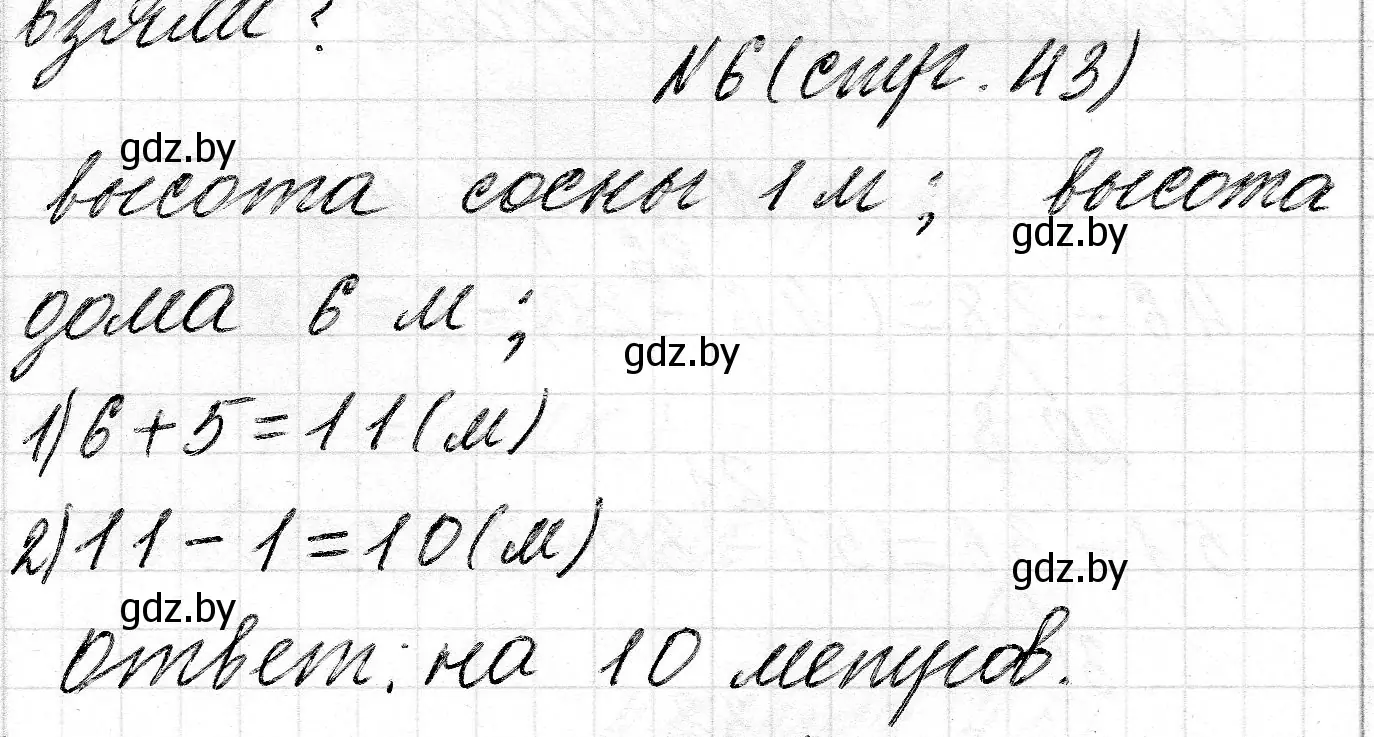 взяли?
№6 (стр. 43)
gdz.by
высота сосны 1 м; высота
gdz.by
дома 6 м;
gdz.by
1) 6+5=11(м)
2) 11-1=10(м)
gdz.by
gdz.by
ответ: на 10 метров.